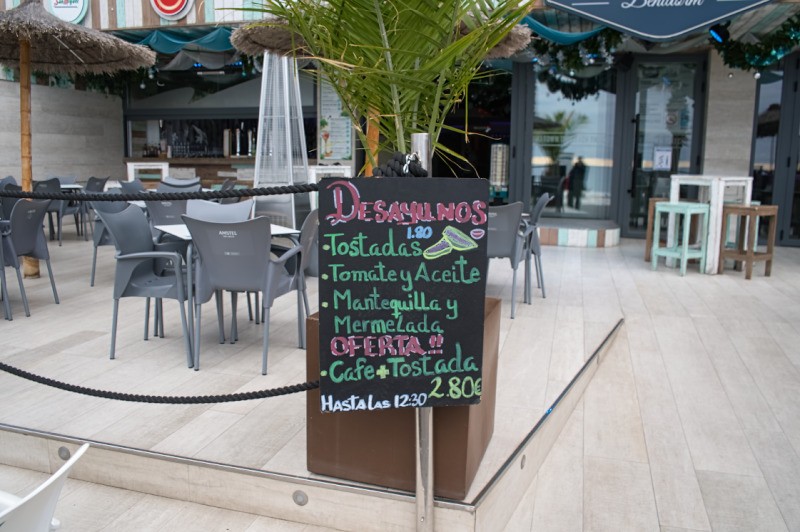 Benidorm
DESAYUNOS
1.80
·Tostadas
·Tomate y Aceite
·Mantequilla y
Mermelada
OFERTA!!
·Cafe+Tostada
2.80€
HASTA LAS 12:30
AMSTEL